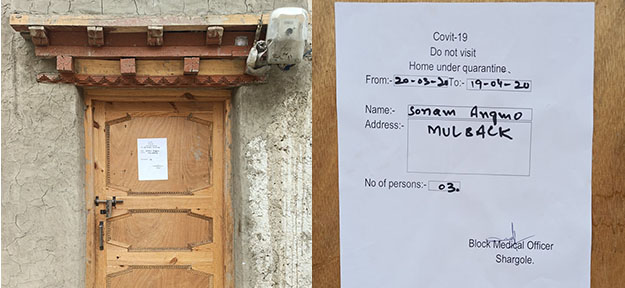 Covit-19
Do not visit
Home under quarantine.
From:- 20-03-20 To:- 19-04-20
Name:- Sonam Angmo
Address:- MULBACK
No of persons:- 03.
Block Medical Officer
Shargole.